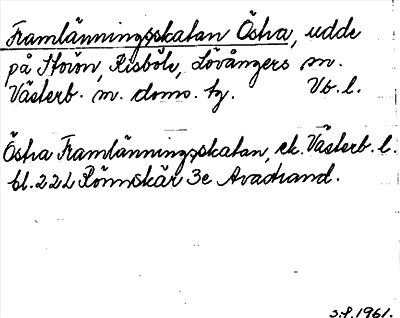 Framlänningsskatan Östra, udde
på Storön, Risböle, Lövångers sn.
Västerb. m. doms. tg. Vb. l.
Östra Framlänningsskatan, ek. Västerb. l.
bl. 22 L Rönnskär 3e Avastrand.
s.f. 1961.